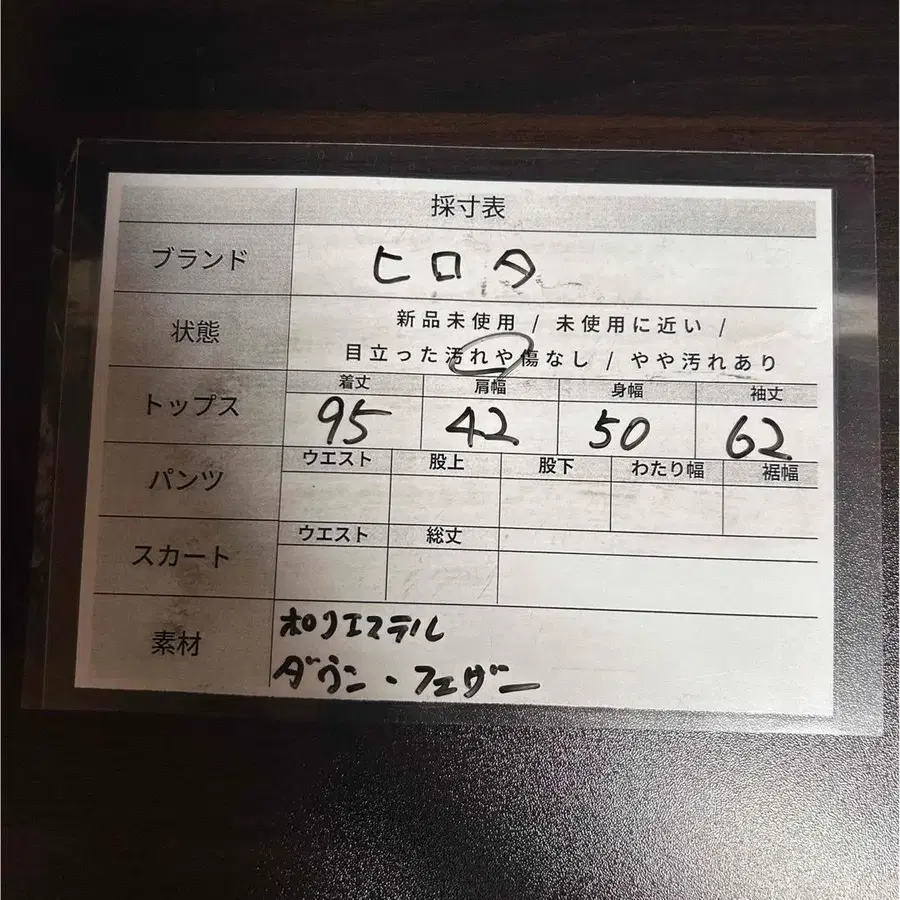 採寸表
ブランド ヒロタ
状態 新品未使用 / 未使用に近い /
目立った汚れや傷なし / やや汚れあり
トップス 着丈 肩幅 身幅 袖丈
95 42 50 62
パンツ ウエスト 股上 股下 わたり幅 裾幅
スカート ウエスト 総丈
素材 ポリエステル
ダウン・フェザー